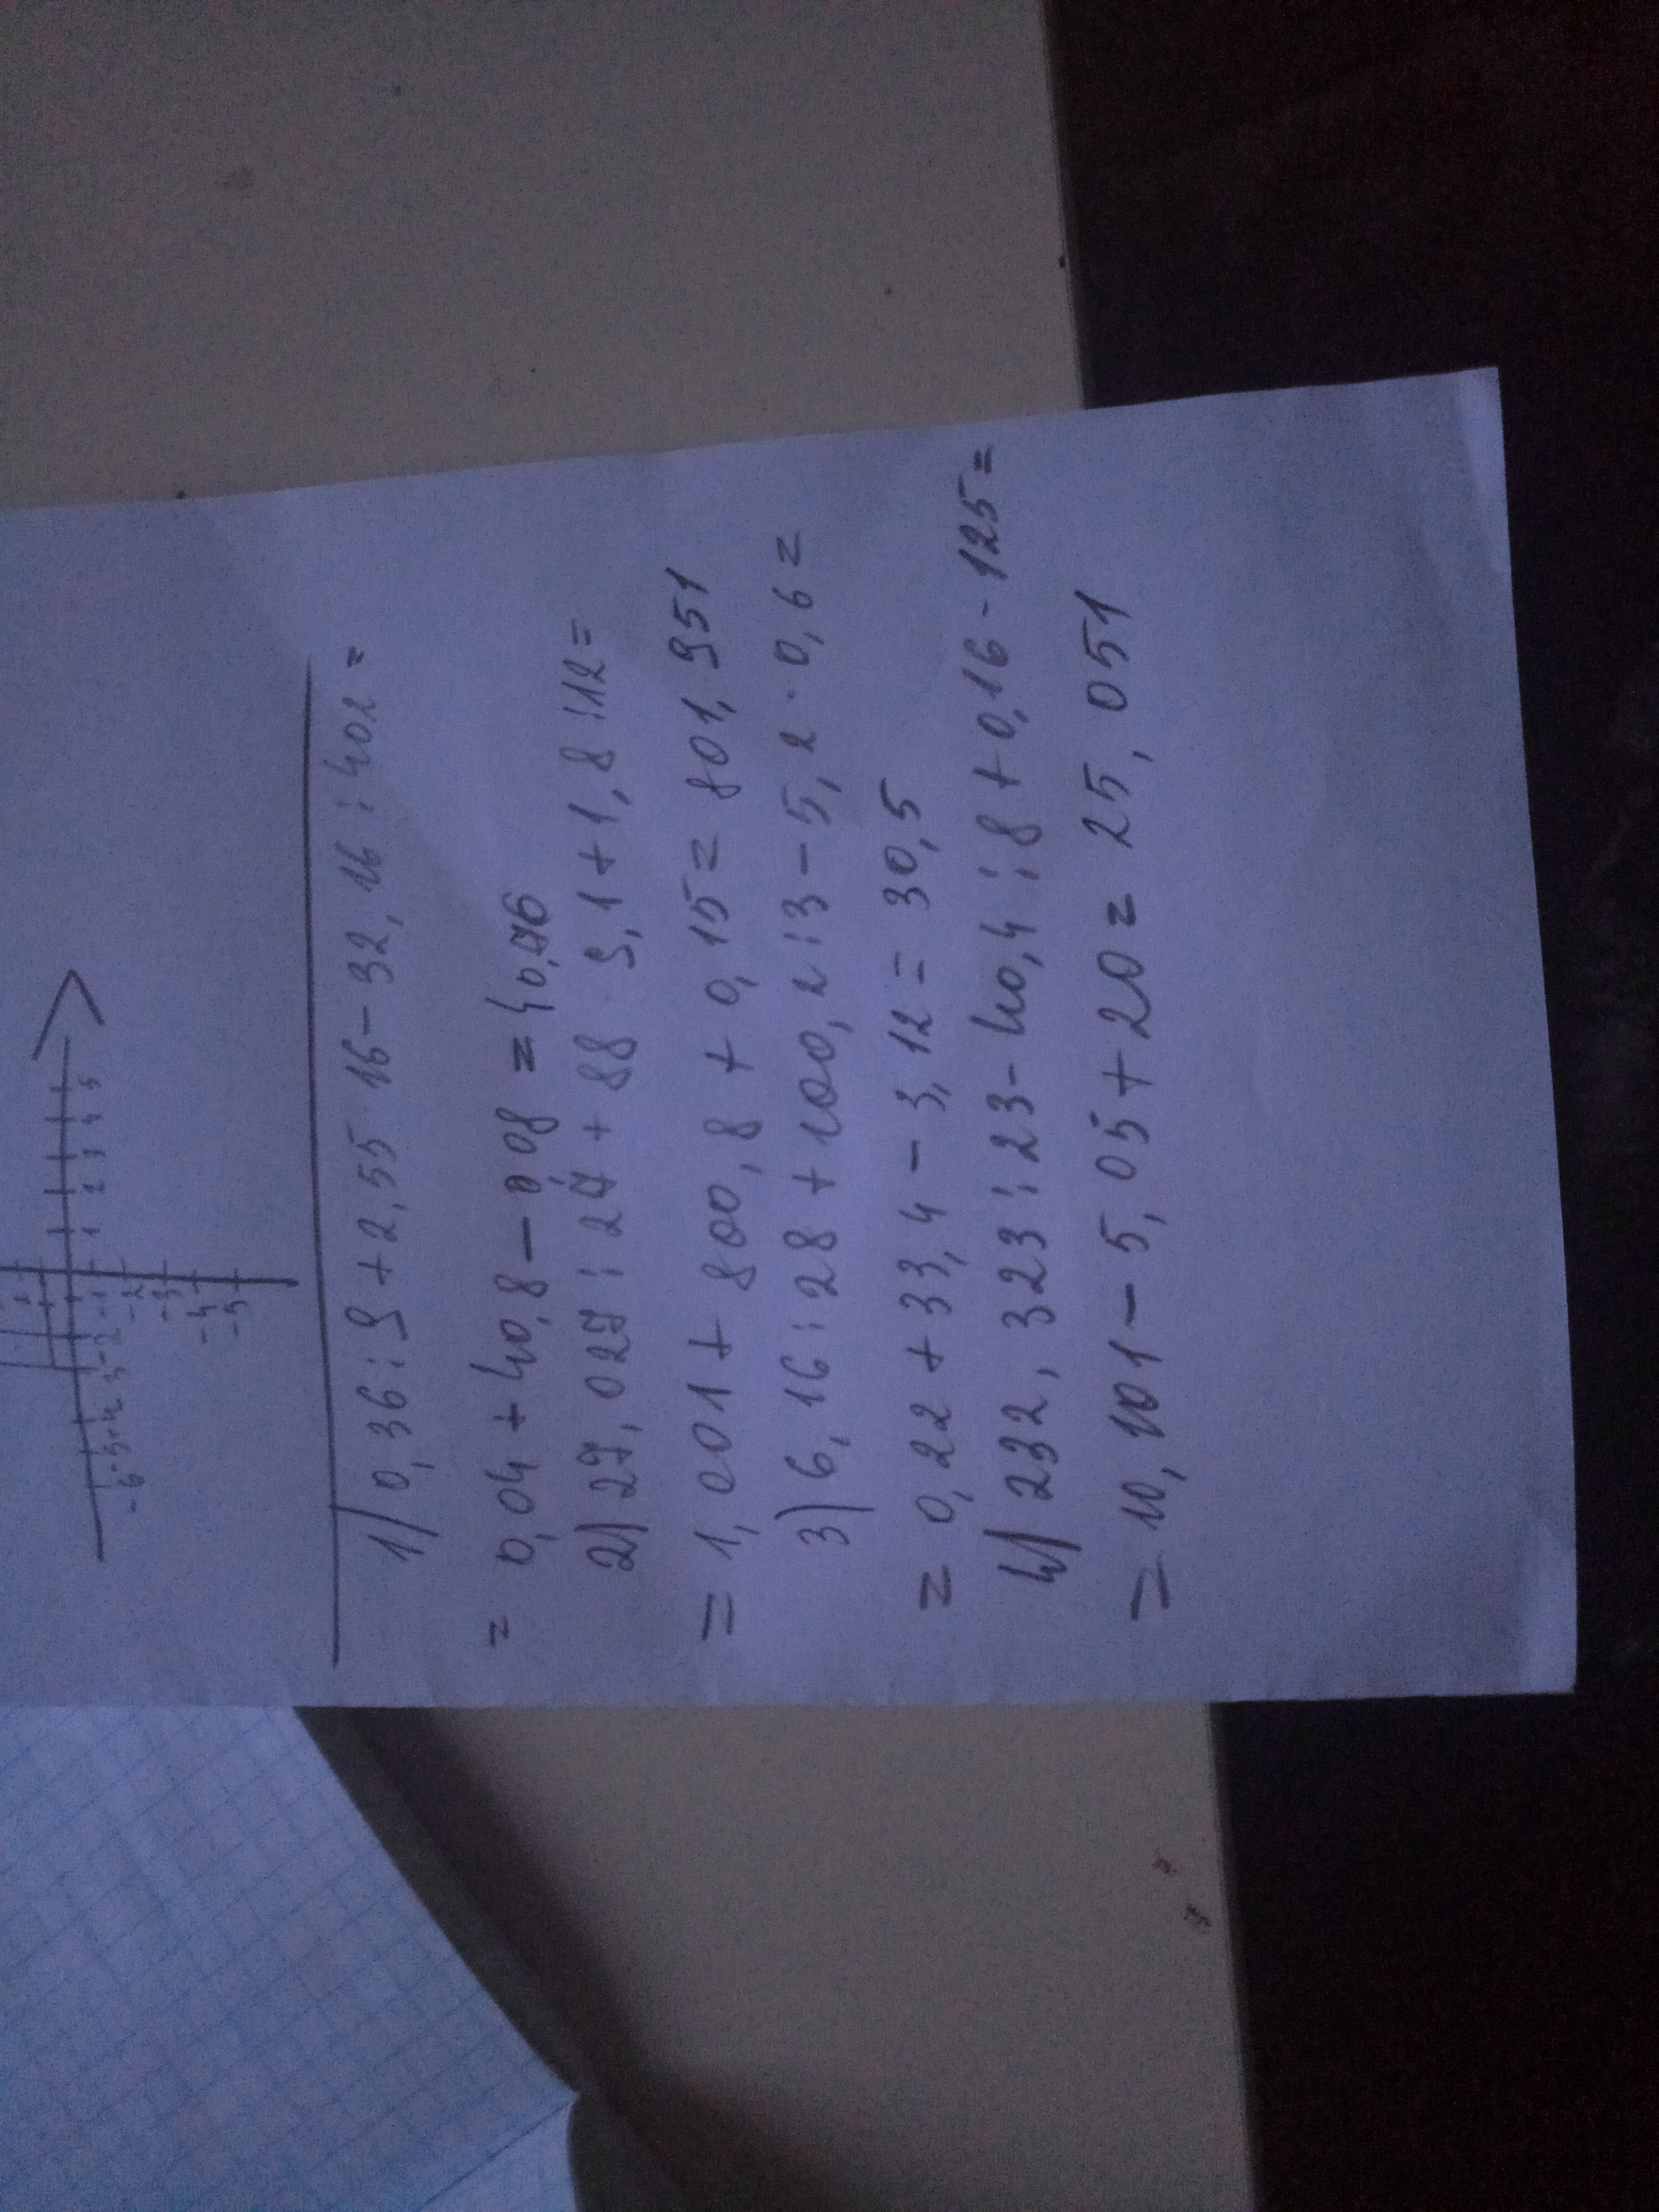 2
1 2 3 4 5
-6 -5 -4 -3 -2 -1
-2
-3
-4
-5
1) 0,36 : 9 + 2,55 · 16 - 32,16 : 402 =
= 0,04 + 40,8 - 0,08 = 40,76
2) 27,027 : 27 + 88 9,1 + 1,8 : 12 =
= 1,001 + 800,8 + 0,15 = 801,951
3) 6,16 : 28 + 100,2 : 3 - 5,2 · 0,6 =
= 0,22 + 33,4 - 3,12 = 30,5
4) 232,323 : 23 - 40,4 : 8 + 0,16 · 125 =
= 10,101 - 5,05 + 20 = 25,051